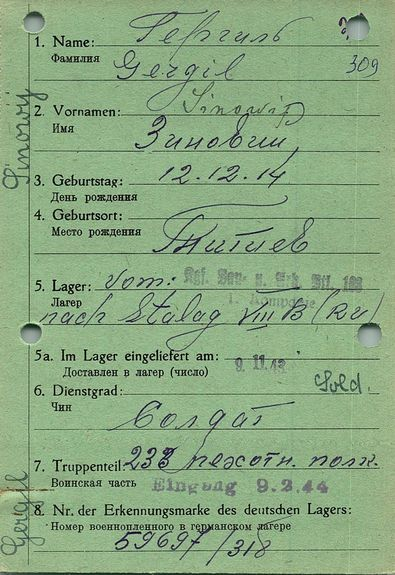 Гергиль
1. Name:
Фамилия Gergil 309
2. Vornamen: Sinowij
Имя Зиновий
3. Geburtstag: 12.12.14
День рождения
4. Geburtsort:
Место рождения
5. Lager: vom: Kgf. Bau- u. Arb. Btl. 188
Лагер 1. Kompanie
nach Stalag VIII B (RU)
5a. Im Lager eingeliefert am: 9. 11. 43
Доставлен в лагер (число)
6. Dienstgrad: Sold.
Чин
Солдат
7. Truppenteil: 233 пехотн. полк.
Воинская часть Eingang 9.2.44
8. Nr. der Erkennungsmarke des deutschen Lagers:
Номер военнопленного в германском лагере
59697/318
Sinowy
Gergil